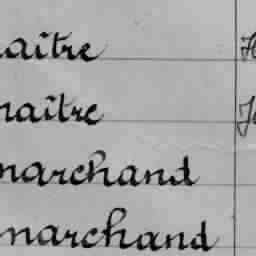 maître
maître
marchand
marchand